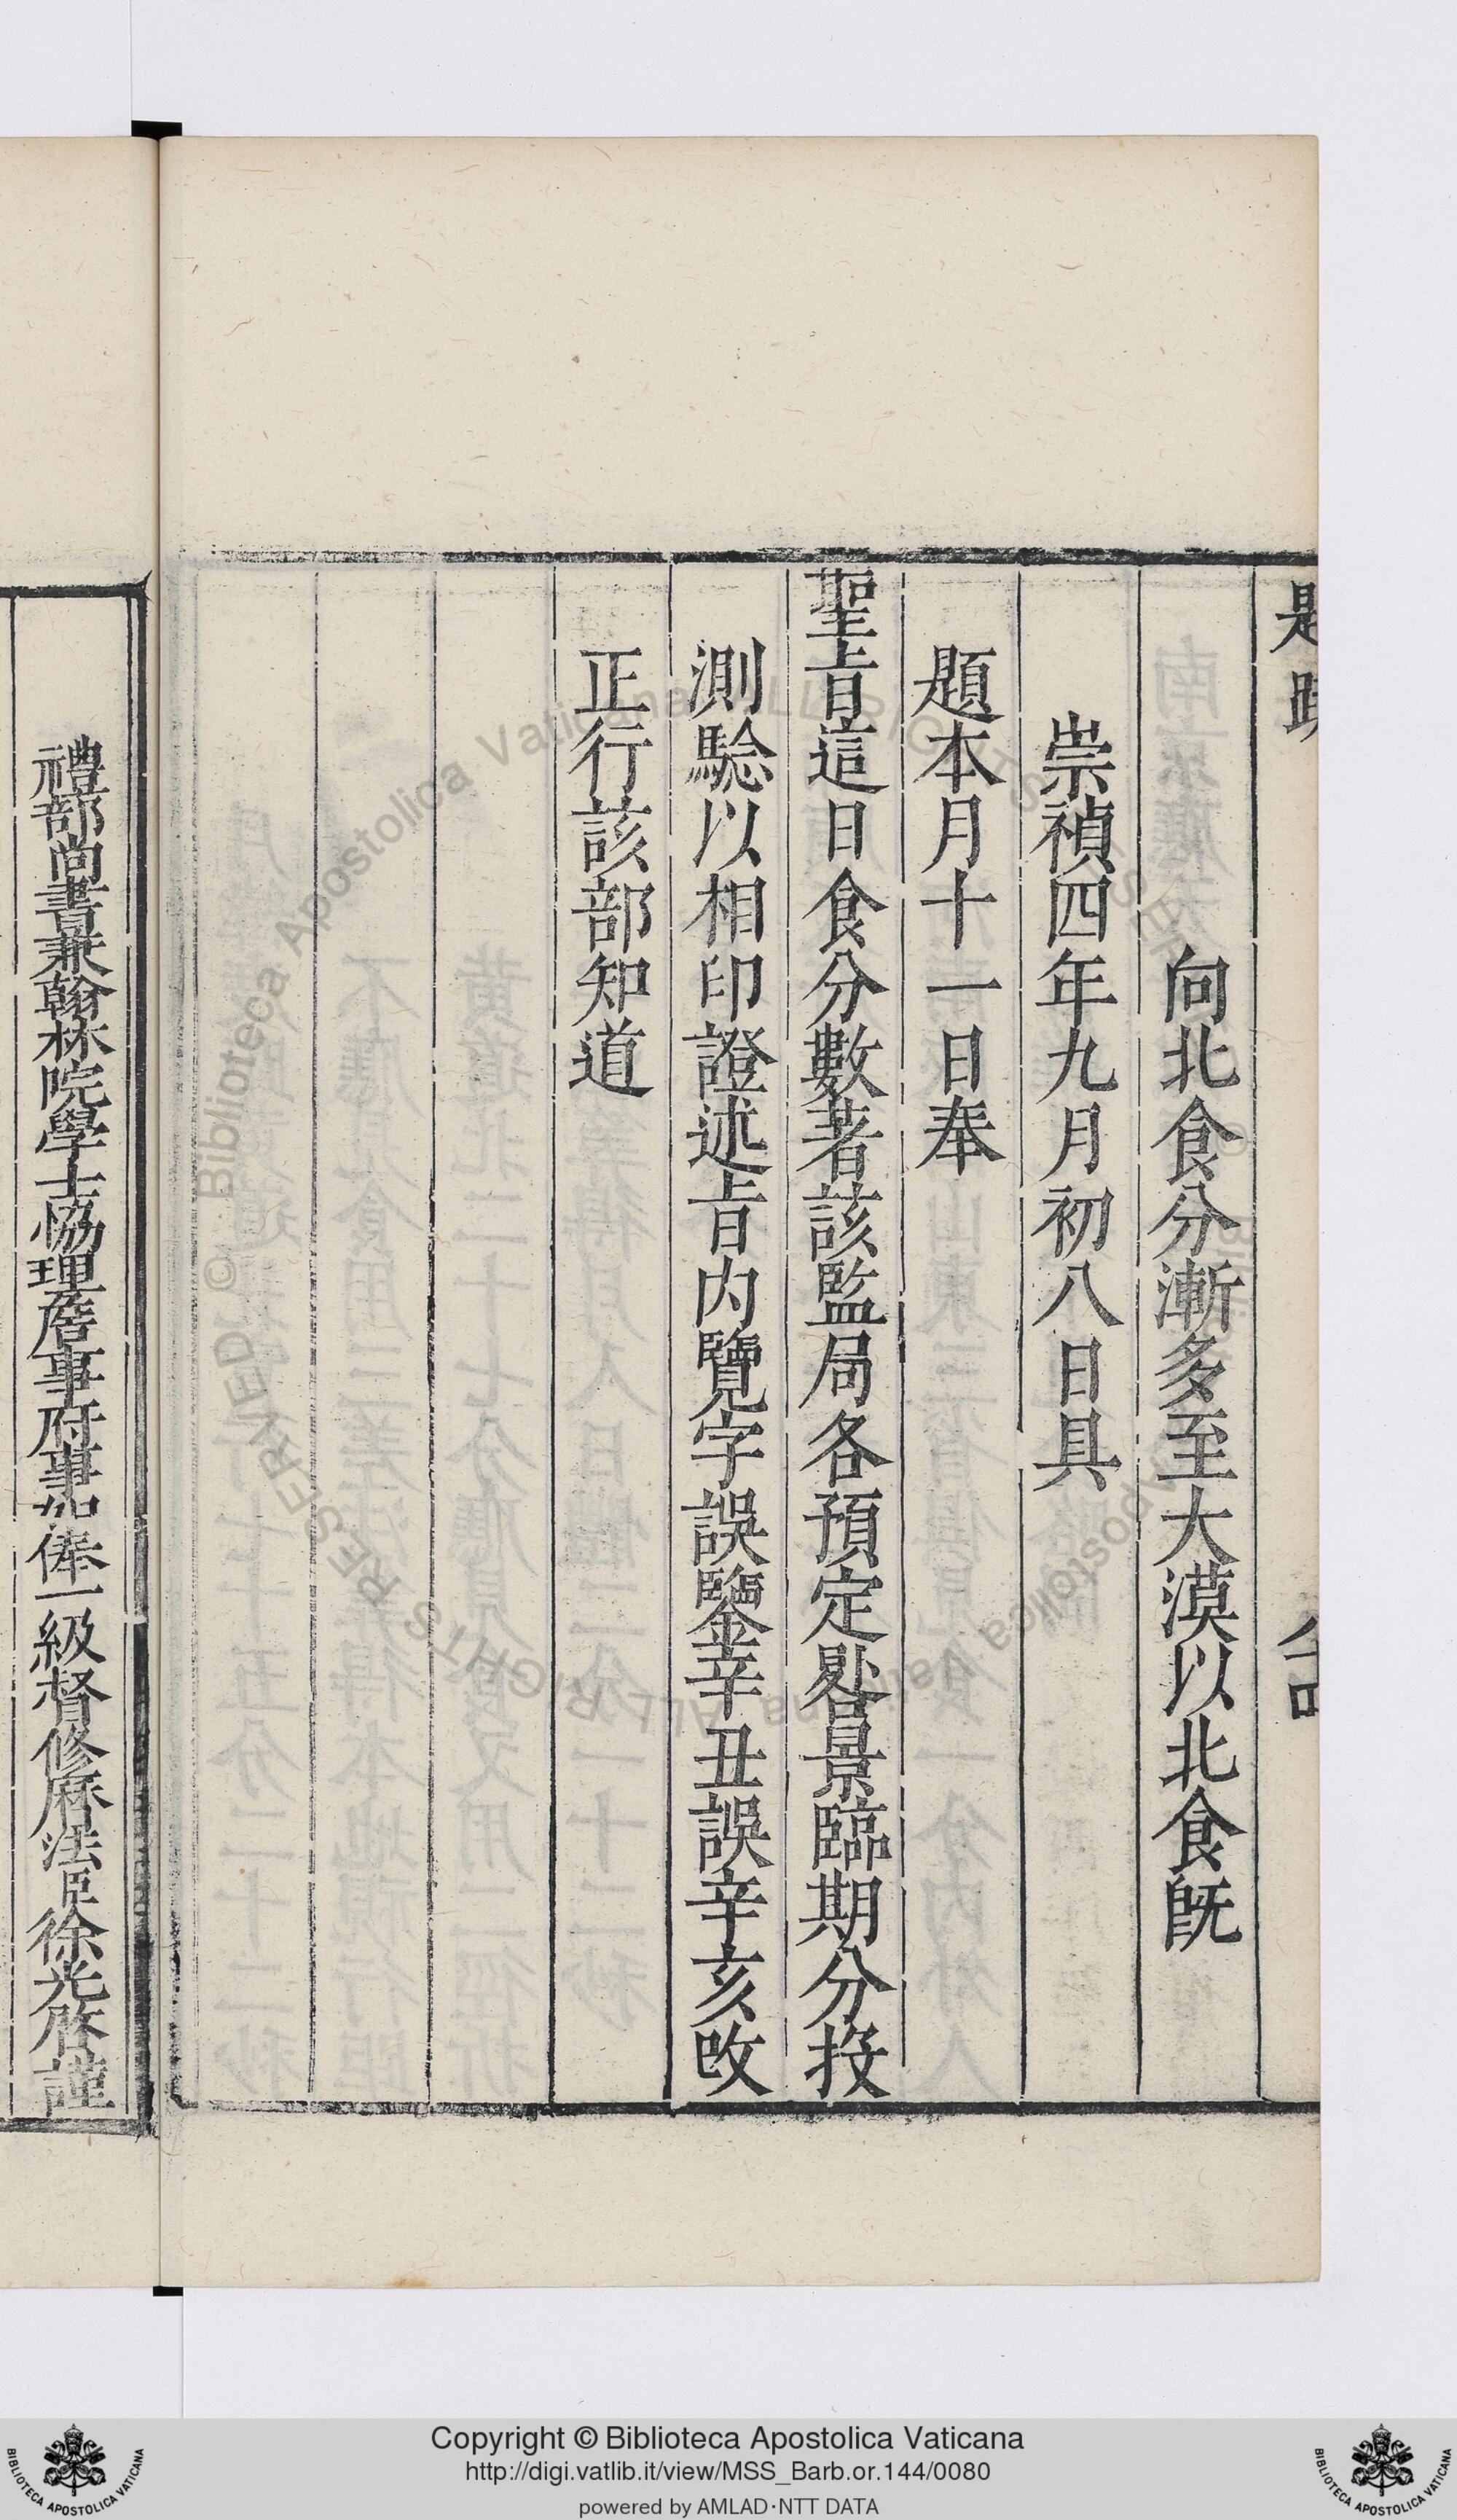 向北食分漸多至大漠以北食旣
崇禎四年九月初八日具
題本月十一日奉
聖旨這日食分數著該監局各預定晷景臨期分投
測驗以相印證述旨內覽字誤鑒辛丑誤辛亥改
正行該部知道
禮部尚書兼翰林院學士協理詹事府事加俸一級督修曆法臣徐光啓謹
Copyright © Biblioteca Apostolica Vaticana
http://digi.vatlib.it/view/MSS_Barb.or.144/0080
powered by AMLAD·NTT DATA